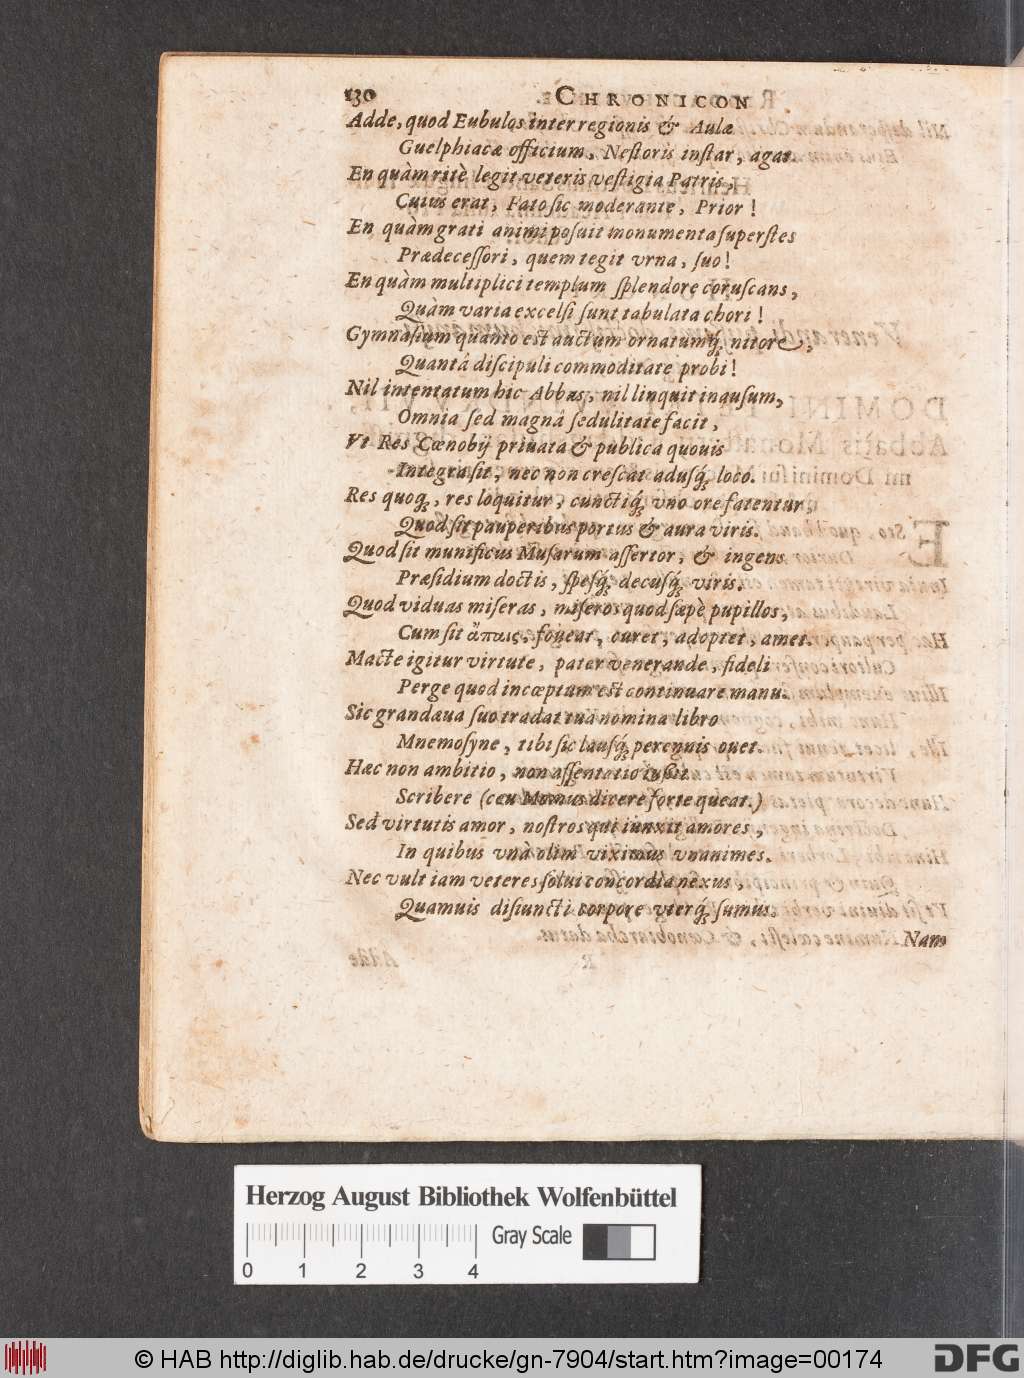 130 CHRONICON
Adde, quod Eubulos inter regionis & Aulæ
Guelphiacæ officium, Nestoris instar, agat.
En quàm ritè legit veteris vestigia Patris,
Cuius erat, Fato sic moderante, Prior!
En quàm grati animi posuit monumenta superstes
Prædecessori, quem tegit vrna, suo!
En quàm multiplici templum splendore coruscans,
Quàm varia excelsi sunt tabulata chori!
Gymnasium quanto est auctum ornatumq́; nitore,
Quantâ discipuli commoditate probi!
Nil intentatum hic Abbas, nil linquit inausum,
Omnia sed magnâ sedulitate facit,
Vt Res Cœnobij priuata & publica quouis
Integra sit, nec non crescat adusq́; loco.
Res quoq́;, res loquitur, cunctiq́; vno ore fatentur,
Quod sit pauperibus portus & aura viris.
Quod sit munificus Musarum assertor, & ingens
Præsidium doctis, spesq́; decusq́; viris.
Quod viduas miseras, miseros quod sæpè pupillos,
Cum sit ἄπαις, foueat, curet, adoptet, amet.
Macte igitur virtute, pater venerande, fideli
Perge quod incœptum est continuare manu.
Sic grandæua suo tradat tua nomina libro
Mnemosyne, tibi sic lausq́; perennis ouet.
Hæc non ambitio, non assentatio iussit
Scribere (ceu Momus dicere forte queat.)
Sed virtutis amor, nostros qui iunxit amores,
In quibus vnà olim viximus vnanimes.
Nec vult iam veteres solui concordia nexus,
Quamuis disiuncti corpore vterq́; sumus.
Nam
Herzog August Bibliothek Wolfenbüttel
Gray Scale
0 1 2 3 4
© HAB http://diglib.hab.de/drucke/gn-7904/start.htm?image=00174
DFG